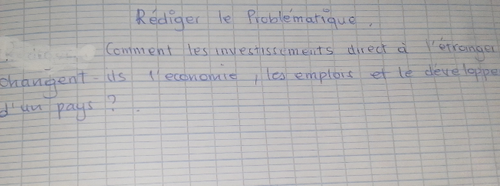 Rédiger le Problématique.
Comment les investissements direct à l'étranger
changent-ils l'economie, les emplois et le developpe
d'un pays ?.